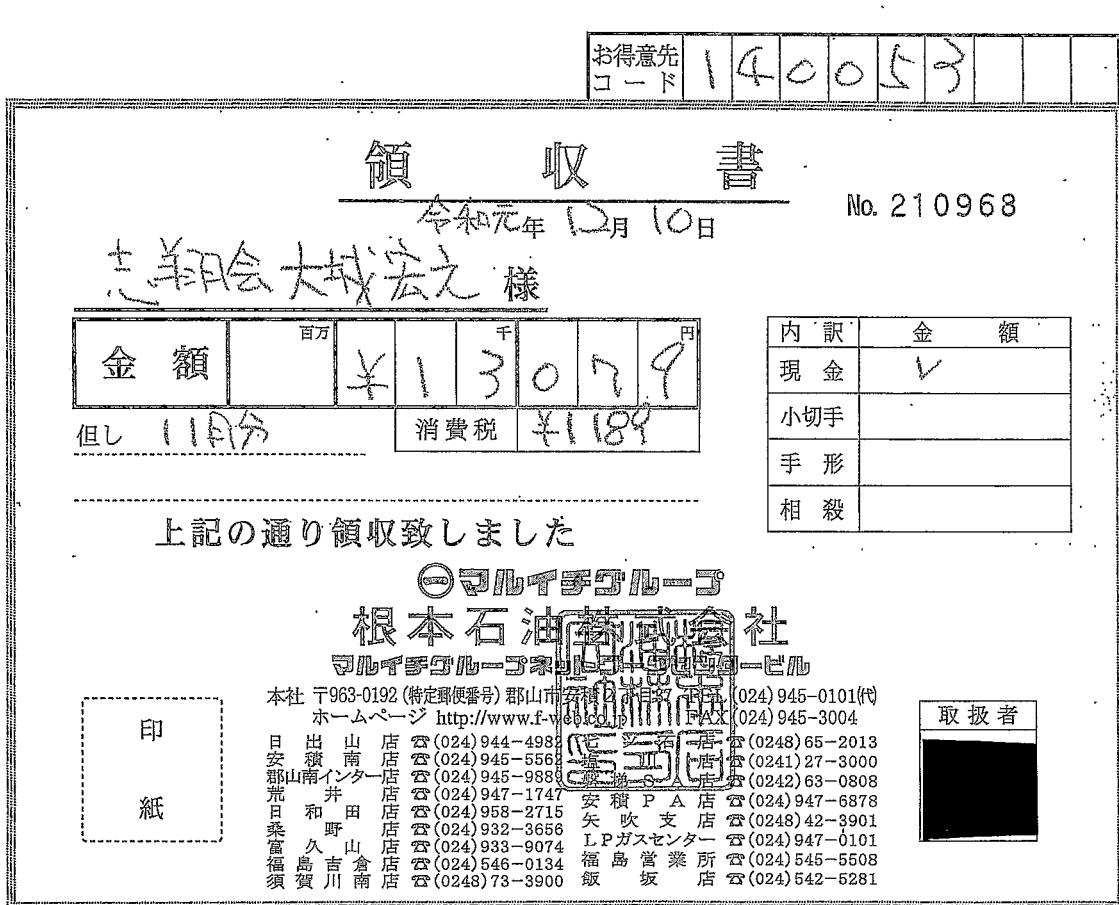 お得意先コード 140053
領収書
令和元年 12月 10日
No. 210968
志翔会 大城宏之 様
金額 百万 千 円 ¥13079
但し 11月分
消費税 ¥1189
内訳 金額
現金 レ
小切手
手形
相殺
上記の通り領収致しました
㊀マルイチグループ
根本石油株式会社
マルイチグループネットワークセンタービル
本社 〒963-0192 (特定郵便番号) 郡山市安積2丁目37 TEL (024) 945-0101(代)
ホームページ http://www.f-web.co.jp FAX (024) 945-3004
印紙
取扱者
日出山店 ☎(024)944-4982
安積南店 ☎(024)945-5562
郡山南インター店 ☎(024)945-9889
荒井店 ☎(024)947-1747
日和田店 ☎(024)958-2715
桑野店 ☎(024)932-3656
富久山店 ☎(024)933-9074
福島吉倉店 ☎(024)546-0134
須賀川南店 ☎(0248)73-3900
七ツ石店 ☎(0248)65-2013
塩川店 ☎(0241)27-3000
磐梯SA店 ☎(0242)63-0808
安積PA店 ☎(024)947-6878
矢吹支店 ☎(0248)42-3901
LPガスセンター ☎(024)947-0101
福島営業所 ☎(024)545-5508
飯坂店 ☎(024)542-5281